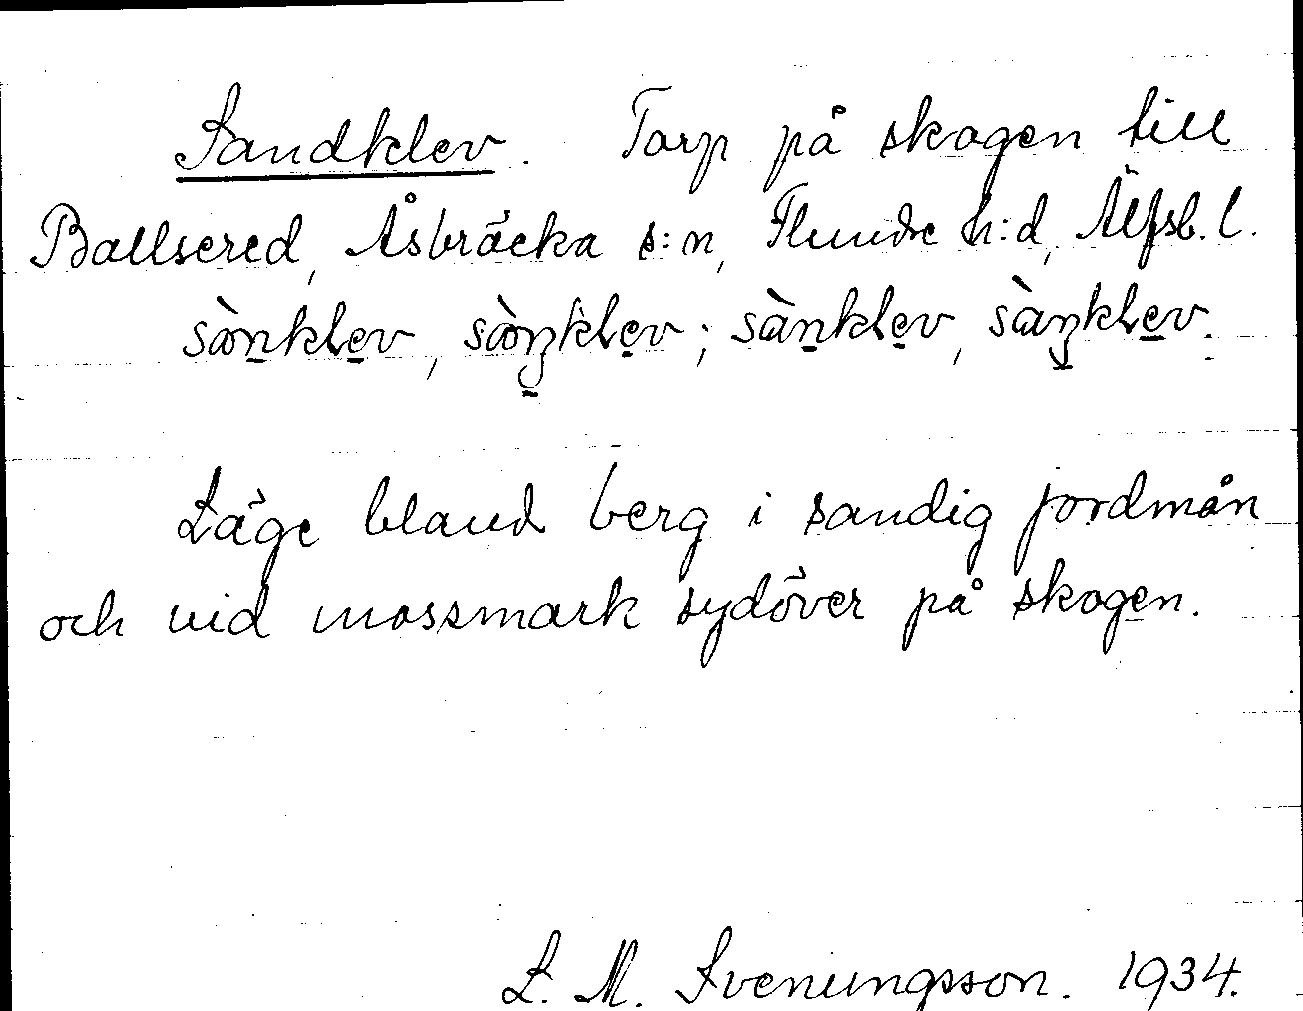 Sandklev. Torp på skogen till
Ballsered, Åsbräcka s:n, Flundre h:d, Älfsb. l.
sòn̠kle̠v, sòŋ̠kle̠v; sàn̠kle̠v, sàŋ̠kle̠v.
Läge bland berg i sandig jordmån
och vid mossmark sydöver på skogen.
L. M. Svenungsson. 1934.